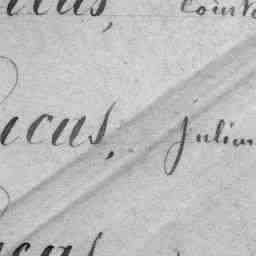 ucas, Coint
ucas, Julien
ucas